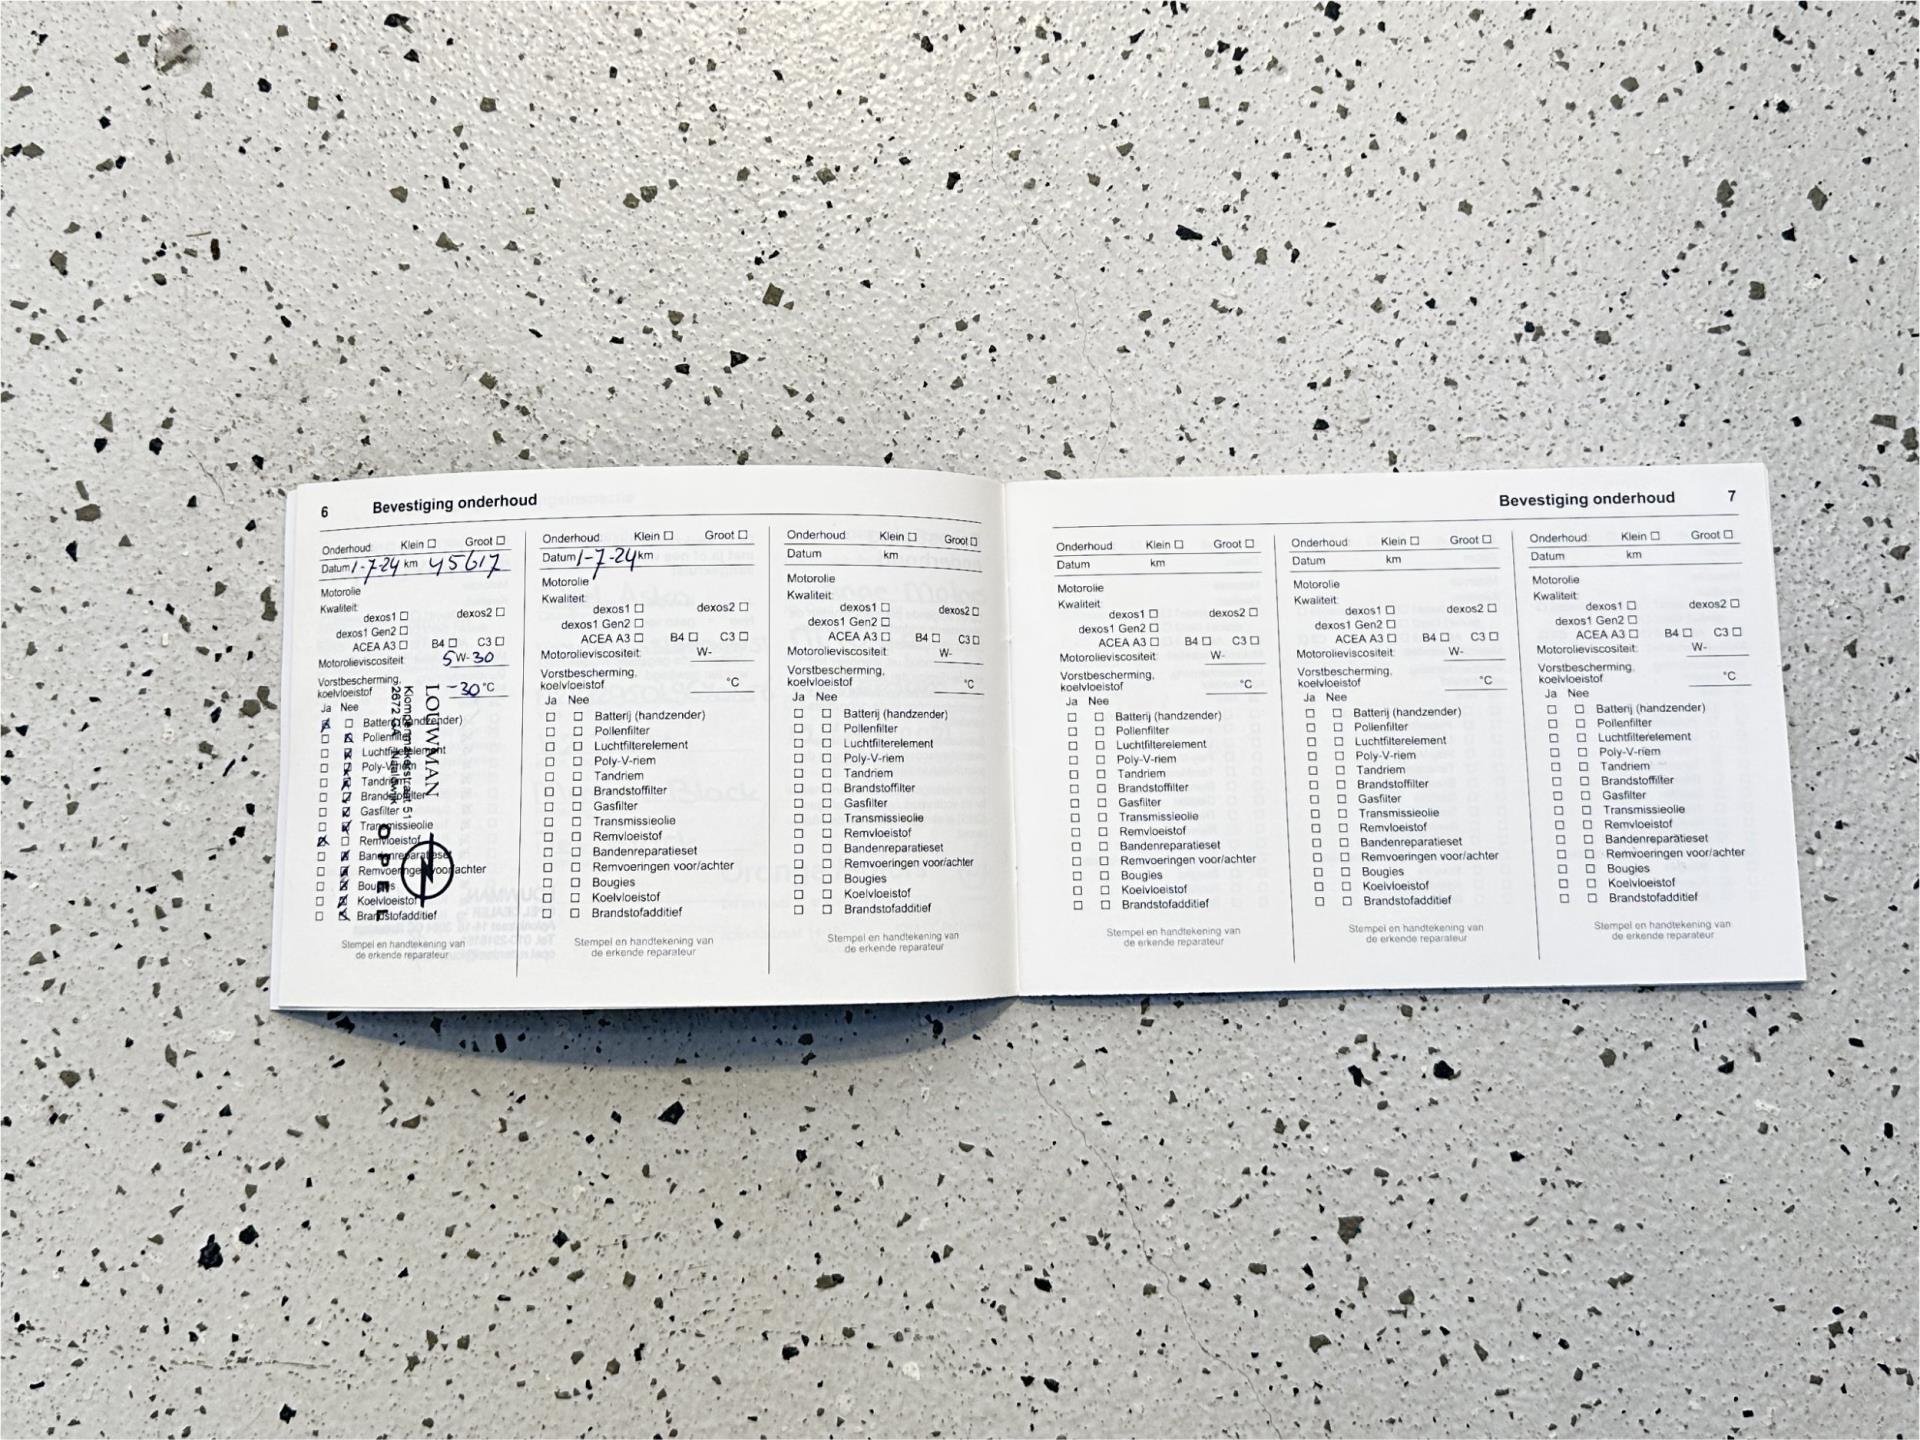 6 Bevestiging onderhoud
Onderhoud: Klein ☐ Groot ☐
Datum 1-7-24 km 45617
Motorolie
Kwaliteit:
dexos1 ☐ dexos2 ☐
dexos1 Gen2 ☐
ACEA A3 ☐ B4 ☐ C3 ☐
Motorolieviscositeit: 5 W- 30
Vorstbescherming,
koelvloeistof -30 °C
Ja Nee
Batterij (handzender)
Pollenfilter
Luchtfilterelement
Poly-V-riem
Tandriem
Brandstoffilter
Gasfilter
Transmissieolie
Remvloeistof
Bandenreparatieset
Remvoeringen voor/achter
Bougies
Koelvloeistof
Brandstofadditief
Stempel en handtekening van
de erkende reparateur
LOUWMAN
51
2672 GA Naaldwijk
OPEL
Onderhoud: Klein ☐ Groot ☐
Datum 1-7-24 km
Motorolie
Kwaliteit:
dexos1 ☐ dexos2 ☐
dexos1 Gen2 ☐
ACEA A3 ☐ B4 ☐ C3 ☐
Motorolieviscositeit: W-
Vorstbescherming,
koelvloeistof °C
Ja Nee
☐ ☐ Batterij (handzender)
☐ ☐ Pollenfilter
☐ ☐ Luchtfilterelement
☐ ☐ Poly-V-riem
☐ ☐ Tandriem
☐ ☐ Brandstoffilter
☐ ☐ Gasfilter
☐ ☐ Transmissieolie
☐ ☐ Remvloeistof
☐ ☐ Bandenreparatieset
☐ ☐ Remvoeringen voor/achter
☐ ☐ Bougies
☐ ☐ Koelvloeistof
☐ ☐ Brandstofadditief
Stempel en handtekening van
de erkende reparateur
Onderhoud: Klein ☐ Groot ☐
Datum km
Motorolie
Kwaliteit:
dexos1 ☐ dexos2 ☐
dexos1 Gen2 ☐
ACEA A3 ☐ B4 ☐ C3 ☐
Motorolieviscositeit: W-
Vorstbescherming,
koelvloeistof °C
Ja Nee
☐ ☐ Batterij (handzender)
☐ ☐ Pollenfilter
☐ ☐ Luchtfilterelement
☐ ☐ Poly-V-riem
☐ ☐ Tandriem
☐ ☐ Brandstoffilter
☐ ☐ Gasfilter
☐ ☐ Transmissieolie
☐ ☐ Remvloeistof
☐ ☐ Bandenreparatieset
☐ ☐ Remvoeringen voor/achter
☐ ☐ Bougies
☐ ☐ Koelvloeistof
☐ ☐ Brandstofadditief
Stempel en handtekening van
de erkende reparateur
Bevestiging onderhoud 7
Onderhoud: Klein ☐ Groot ☐
Datum km
Motorolie
Kwaliteit:
dexos1 ☐ dexos2 ☐
dexos1 Gen2 ☐
ACEA A3 ☐ B4 ☐ C3 ☐
Motorolieviscositeit: W-
Vorstbescherming,
koelvloeistof °C
Ja Nee
☐ ☐ Batterij (handzender)
☐ ☐ Pollenfilter
☐ ☐ Luchtfilterelement
☐ ☐ Poly-V-riem
☐ ☐ Tandriem
☐ ☐ Brandstoffilter
☐ ☐ Gasfilter
☐ ☐ Transmissieolie
☐ ☐ Remvloeistof
☐ ☐ Bandenreparatieset
☐ ☐ Remvoeringen voor/achter
☐ ☐ Bougies
☐ ☐ Koelvloeistof
☐ ☐ Brandstofadditief
Stempel en handtekening van
de erkende reparateur
Onderhoud: Klein ☐ Groot ☐
Datum km
Motorolie
Kwaliteit:
dexos1 ☐ dexos2 ☐
dexos1 Gen2 ☐
ACEA A3 ☐ B4 ☐ C3 ☐
Motorolieviscositeit: W-
Vorstbescherming,
koelvloeistof °C
Ja Nee
☐ ☐ Batterij (handzender)
☐ ☐ Pollenfilter
☐ ☐ Luchtfilterelement
☐ ☐ Poly-V-riem
☐ ☐ Tandriem
☐ ☐ Brandstoffilter
☐ ☐ Gasfilter
☐ ☐ Transmissieolie
☐ ☐ Remvloeistof
☐ ☐ Bandenreparatieset
☐ ☐ Remvoeringen voor/achter
☐ ☐ Bougies
☐ ☐ Koelvloeistof
☐ ☐ Brandstofadditief
Stempel en handtekening van
de erkende reparateur
Onderhoud: Klein ☐ Groot ☐
Datum km
Motorolie
Kwaliteit:
dexos1 ☐ dexos2 ☐
dexos1 Gen2 ☐
ACEA A3 ☐ B4 ☐ C3 ☐
Motorolieviscositeit: W-
Vorstbescherming,
koelvloeistof °C
Ja Nee
☐ ☐ Batterij (handzender)
☐ ☐ Pollenfilter
☐ ☐ Luchtfilterelement
☐ ☐ Poly-V-riem
☐ ☐ Tandriem
☐ ☐ Brandstoffilter
☐ ☐ Gasfilter
☐ ☐ Transmissieolie
☐ ☐ Remvloeistof
☐ ☐ Bandenreparatieset
☐ ☐ Remvoeringen voor/achter
☐ ☐ Bougies
☐ ☐ Koelvloeistof
☐ ☐ Brandstofadditief
Stempel en handtekening van
de erkende reparateur